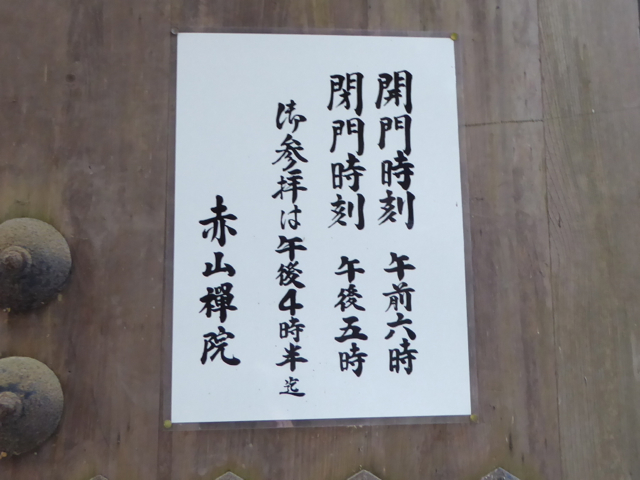 開門時刻 午前六時
閉門時刻 午後五時
御参拝は午後4時半迄
赤山禅院